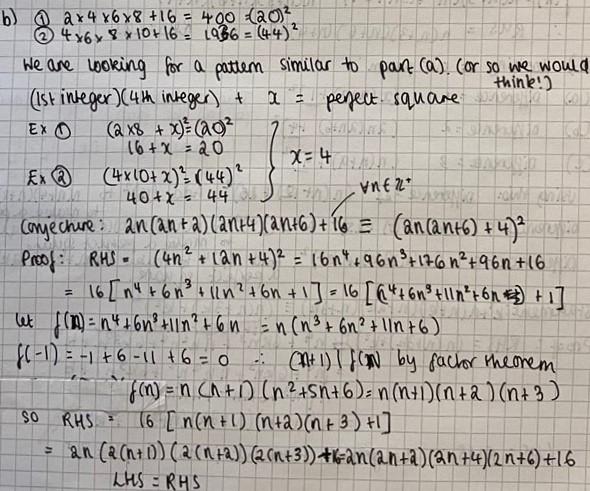 b) ① 2×4×6×8+16 = 400 =(20)²
② 4×6×8×10+16 = 1936 = (44)²
We are looking for a pattern similar to part (a). (or so we would think!)
(1st integer)(4th integer) + x = perfect square
Ex ① (2×8 + x)²=(20)²
16+x = 20
x=4
Ex ② (4×10+x)²=(44)²
40+x = 44
∀n∈ℤ⁺
Conjecture: 2n(2n+2)(2n+4)(2n+6)+16 ≡ (2n(2n+6)+4)²
Proof: RHS = (4n²+12n+4)² = 16n⁴+96n³+176n²+96n+16
= 16[n⁴+6n³+11n²+6n+1] = 16[(n⁴+6n³+11n²+6n) +1]
let f(n)=n⁴+6n³+11n²+6n = n(n³+6n²+11n+6)
f(-1) = -1+6-11+6 = 0 ∴ (n+1) | f(n) by factor theorem
f(n) = n(n+1)(n²+5n+6) = n(n+1)(n+2)(n+3)
so RHS = 16[n(n+1)(n+2)(n+3)+1]
= 2n(2(n+1))(2(n+2))(2(n+3))+16=2n(2n+2)(2n+4)(2n+6)+16
LHS = RHS